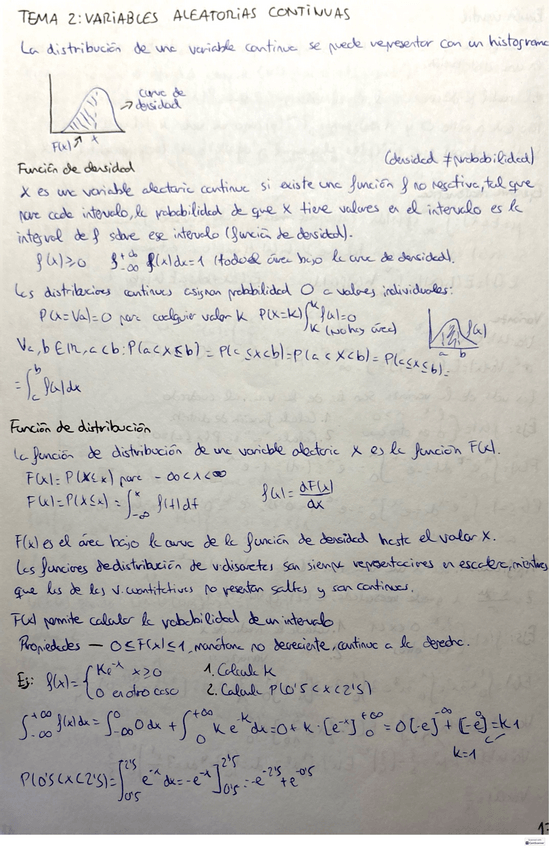 TEMA 2: VARIABLES ALEATORIAS CONTINUAS
La distribución de una variable continua se puede representar con un histograma
Curva de densidad
F(x) x
Función de densidad (densidad ≠ probabilidad)
X es una variable aleatoria continua si existe una función f no negativa, tal que
para cada intervalo, la probabilidad de que X tiene valores en el intervalo es la
integral de f sobre ese intervalo (función de densidad).
f(x)≥0 ∫-∞ +∞ f(x)dx=1 (todo el área bajo la curva de densidad).
Las distribuciones continuas asignan probabilidad 0 a valores individuales:
P(X=Va)=0 para cualquier valor K P(X=K)∫K K f(x)=0
(No hay área)
f(x)
a b
∀a,b∈ℝ, a<b: P(a<x≤b) = P(a≤x<b)=P(a<x<b) = P(a≤x≤b)=
=∫a b f(x)dx
Función de distribución
La función de distribución de una variable aleatoria X es la función F(x).
F(x)=P(X≤x) para -∞<x<∞
F(x)=P(X≤x)=∫-∞ x f(t)dt f(x)=dF(x)/dx
F(x) es el área bajo la curva de la función de densidad hasta el valor X.
Las funciones de distribución de v.discretas son siempre representaciones en escalera, mientras
que las de las v.cuantitativas no presentan saltos y son continuas.
F(x) permite calcular la probabilidad de un intervalo
Propiedades — 0≤F(x)≤1, monótona no decreciente, continua a la derecha.
Ej: f(x)={Ke^-x x≥0 1. Calcula K
0 en otro caso 2. Calcula P(0'5<x<2'5)
∫-∞ +∞ f(x)dx=∫-∞ 0 0dx+∫0 +∞ K e^-x dx=0+k·[e^-x]0 +∞=0[-e]^-∞+[-e]^0=k1
k=1
P(0'5<x<2'5)=∫0'5 2'5 e^-x dx=-e^-x]0'5 2'5=-e^-2'5+e^-0'5